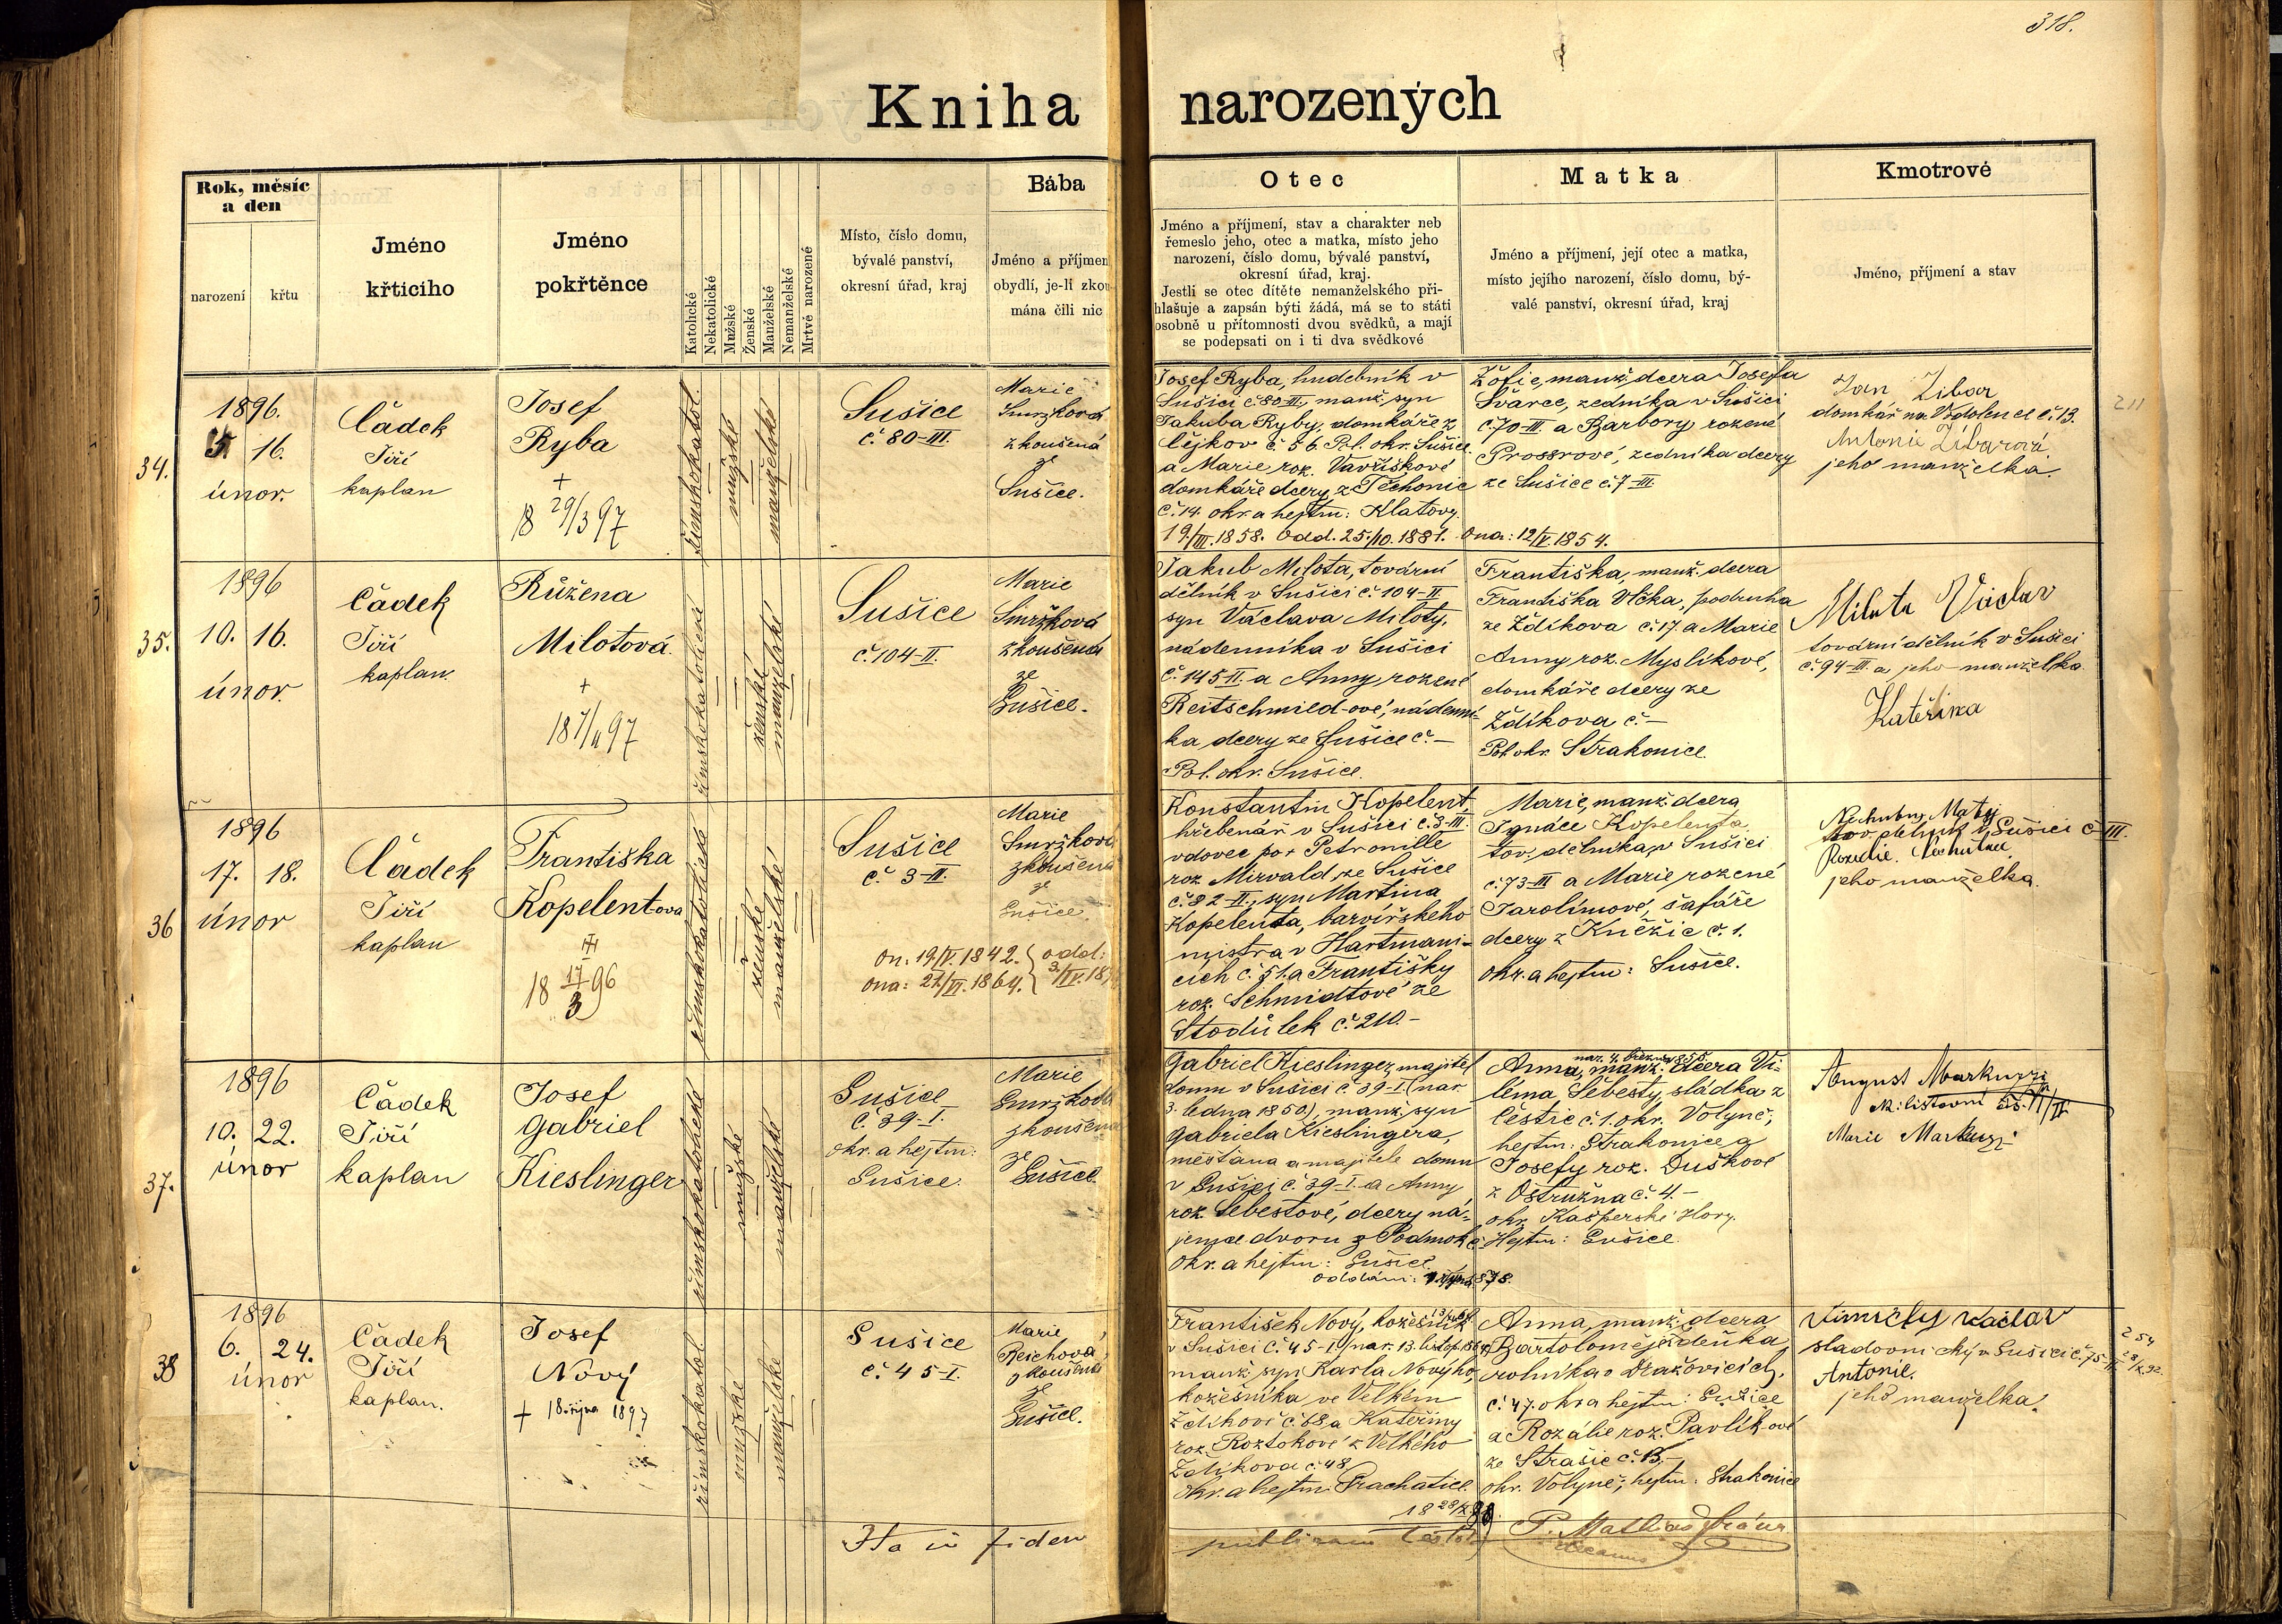 318.
Kniha narozených
Rok, měsíc
a den
narození
křtu
Jméno
křticího
Jméno
pokřtěnce
Katolické
Nekatolické
Mužské
Ženské
Manželské
Nemanželské
Mrtvě narozené
Místo, číslo domu,
bývalé panství,
okresní úřad, kraj
Bába
Jméno a příjmen
obydlí, je-li zkou
mána čili nic
Otec
Jméno a příjmení, stav a charakter neb
řemeslo jeho, otec a matka, místo jeho
narození, číslo domu, bývalé panství,
okresní úřad, kraj.
Jestli se otec dítěte nemanželského při-
hlašuje a zapsán býti žádá, má se to státi
osobně u přítomnosti dvou svědků, a mají
se podepsati on i ti dva svědkové
Matka
Jméno a příjmení, její otec a matka,
místo jejího narození, číslo domu, bý-
valé panství, okresní úřad, kraj
Kmotrové
Jméno, příjmení a stav
34.
1896.
16.
únor.
Čádek
Jiří
kaplan
Josef
Ryba
+
18 29/3 97
římskokatol.
mužské
manželské
Sušice
č. 80-III.
Marie
Smržková
zkoušená
ze
Sušice.
Josef Ryba, hudebník v
Sušici č. 80-III, manž. syn
Jakuba Ryby, domkáře z
Čejkov č. 56. Pol. okr. Sušice.
a Marie roz. Vavřiškové
domkáře dcery z Těchonic
č. 14. okr. a hejtm: Klatovy.
19/III. 1858. Odd. 25./10. 1881.
Žofie, manž. dcera Josefa
Švarce, zedníka v Sušici
č. 70-III. a Barbory rozené
zedníka dcery
ze Sušice č. 7-III.
Ona: 12/V. 1854.
Jan Zibar
domkář na Vrdolenci č. 13.
Antonie Zibarová
jeho manželka.
211
35.
1896
10. 16.
únor.
Čádek
Jiří
kaplan.
Růžena
Milotová.
+
římskokatolické
ženské
manželské
Sušice
č. 104-II.
Marie
Smržková
zkoušená
ze
Sušice.
Jakub Milota, tovární
dělník v Sušici č. 104-II
syn Václava Miloty,
nádenníka v Sušici
č. 145 II. a Anny rozené
Reitschmied-ové, nádenní-
ka dcery ze Sušice č. –
Pol. okr. Sušice.
Františka, manž. dcera
Františka Vlčka, podruha
ze Zdíkova č. 17. a Marie
Anny roz. Myslíkové,
domkáře dcery ze
Zdíkova č. –
Pol. okr. Strakonice.
Milota Václav
tovární dělník v Sušici
č. 94-III. a jeho manželka
Kateřina
36
1896
17. 18.
únor
Čádek
Jiří
kaplan
Františka
Kopelentova
18 17/3 96
římskokatolické
ženské
manželské
Sušice
č. 3-II.
On: 19/V. 1842.
Ona: 27/VI. 1864.
odd:
Marie
Smržková
zkoušená
ze
Sušice
Konstantin Kopelent,
hřebenář v Sušici č. 3-III.
vdovec po + Petronille
roz. Mirvald, ze Sušice
č. 82-II., syn Martina
Kopelenta, barvířského
mistra v Hartmani-
cích č. 51. a Františky
roz. Schmidtové ze
Stodůlek č. 210.–
Marie, manž. dcera
Ignáce Kopelenta,
tov. dělníka, v Sušici
č. 73-III a Marie rozené
Jarolímové, šafáře
dcery z Kněžic č. 1.
okr. a hejtm: Sušice.
Nechutny Matěj
tov. dělník v Sušici č III.
Rozalie Nechutna
jeho manželka.
37.
1896
10. 22.
únor
Čádek
Jiří
kaplan
Josef
Gabriel
Kieslinger
římskokatolické
mužské
manželské
Sušice
č. 39-I.
okr. a hejtm:
Sušice.
Marie
Smržková
zkoušená
ze
Sušice
Gabriel Kieslinger, majitel
domu v Sušici č. 39-I. (nar.
3. ledna 1850), manž. syn
Gabriela Kieslingera,
měšťana a majitele domu
v Sušici č. 39-I. a Anny
roz. Šebestové, dcery ná-
jemce dvoru z Podmokl
okr. a hejtm: Sušice.
nar. 4. března 1855
Anna, manž. dcera Vi-
léma Šebesty, sládka z
Čestic č. 1. okr. Volyně,
hejtm: Strakonice a
Josefy roz. Duškové
z Ostružna č. 4.–
okr. Kašperské Hory.
Hejtm: Sušice.
August Markuzzi
Marie Markuzzi
38
1896
6. 24.
únor
Čádek
Jiří
kaplan.
Josef
Nový
+ 18. října 1897
římskokatol
mužské
manželské
Sušice
č. 45-I.
Marie
Reichová
zkoušená
ze
Sušice.
František Nový, kožešník
v Sušici č. 45-I. (nar. 13. listop. 1864)
manž. syn Karla Nového,
kožešníka ve Velkém
Zdíkově č. 68 a Kateřiny
roz. Roztokové z Velkého
Zdíkova č. 48
okr. a hejtm. Prachatice.
Anna, manž. dcera
Bartoloměje
rolníka v Dražovicích,
č. 47. okr. a hejtm: Sušice
a Rozálie roz. Pavlíkové
ze Strašic č. 13.–
okr. Volyně, hejtm: Strakonice
Václav
sladovnický v Sušici č. 75-II.
Antonie.
jeho manželka.
254
Ita in fidem
publicam testor
P. Mathias
decanus